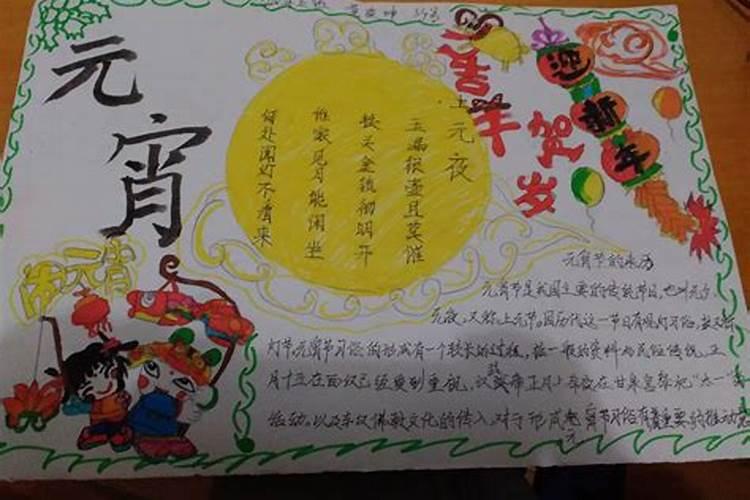 元宵
闹元宵
上元夜
玉漏银壶且莫催
铁关金锁彻明开
谁家见月能闲坐
何处闻灯不看来
喜羊
贺岁
迎新年
元宵节的来历
元宵节是我国主要的传统节日,也叫元夕、
元夜,又称上元节。因历代这一节日有观灯习俗,故又称
灯节。元宵节习俗的形成有一个较长的过程,据一般的资料与民俗传说,正
月十五在西汉已经受到重视,汉武帝正月上辛夜在甘泉宫祭祀“太一”
活动。以及东汉佛教文化的传入,对于形成元宵节习俗有着重要的推动意